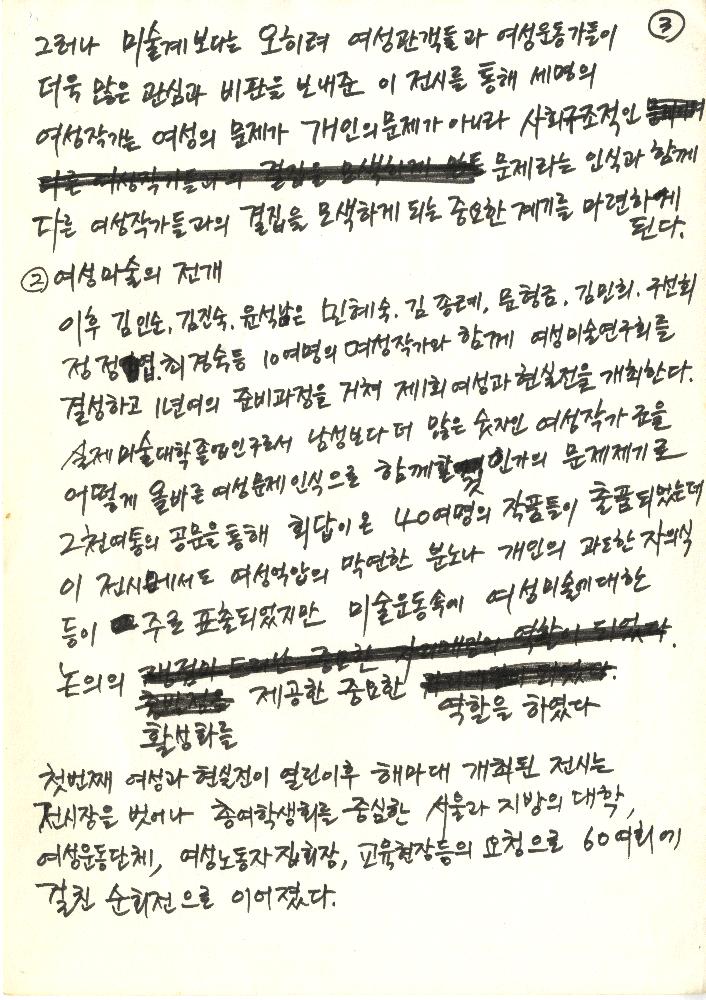 ③
그러나 미술계보다는 오히려 여성관객들과 여성운동가들이
더욱 많은 관심과 비판을 보내준 이 전시를 통해 세명의
여성작가는 여성의 문제가 개인의문제가 아니라 사회구조적인
문제라는 인식과 함께
다른 여성작가들과의 결집을 모색하게 되는 중요한 계기를 마련하게
된다.
② 여성미술의 전개
이후 김인순, 김진숙, 윤석남은 민혜숙. 김종례, 문형금, 김민희. 구선회
정정엽. 최경숙등 10여명의 여성작가와 함께 여성미술연구회를
결성하고 1년여의 준비과정을 거쳐 제1회 여성과 현실전을 개최한다.
실제 미술대학졸업인구로서 남성보다 더 많은 숫자인 여성작가군을
어떻게 올바른 여성문제 인식으로 함께할 것인가의 문제제기로
2천여통의 공문을 통해 회답이 온 40여명의 작품들이 출품되었는데
이 전시에서도 여성억압의 막연한 분노나 개인의 과도한 자의식
등이 주로 표출되었지만 미술운동속에 여성미술에 대한
논의의
제공한 중요한
활성화를 역할을 하였다
첫번째 여성과 현실전이 열린이후 해마다 개최된 전시는
전시장을 벗어나 총여학생회를 중심한 서울과 지방의 대학,
여성운동단체, 여성노동자집회장, 교육현장등의 요청으로 60여회에
걸친 순회전으로 이어졌다.